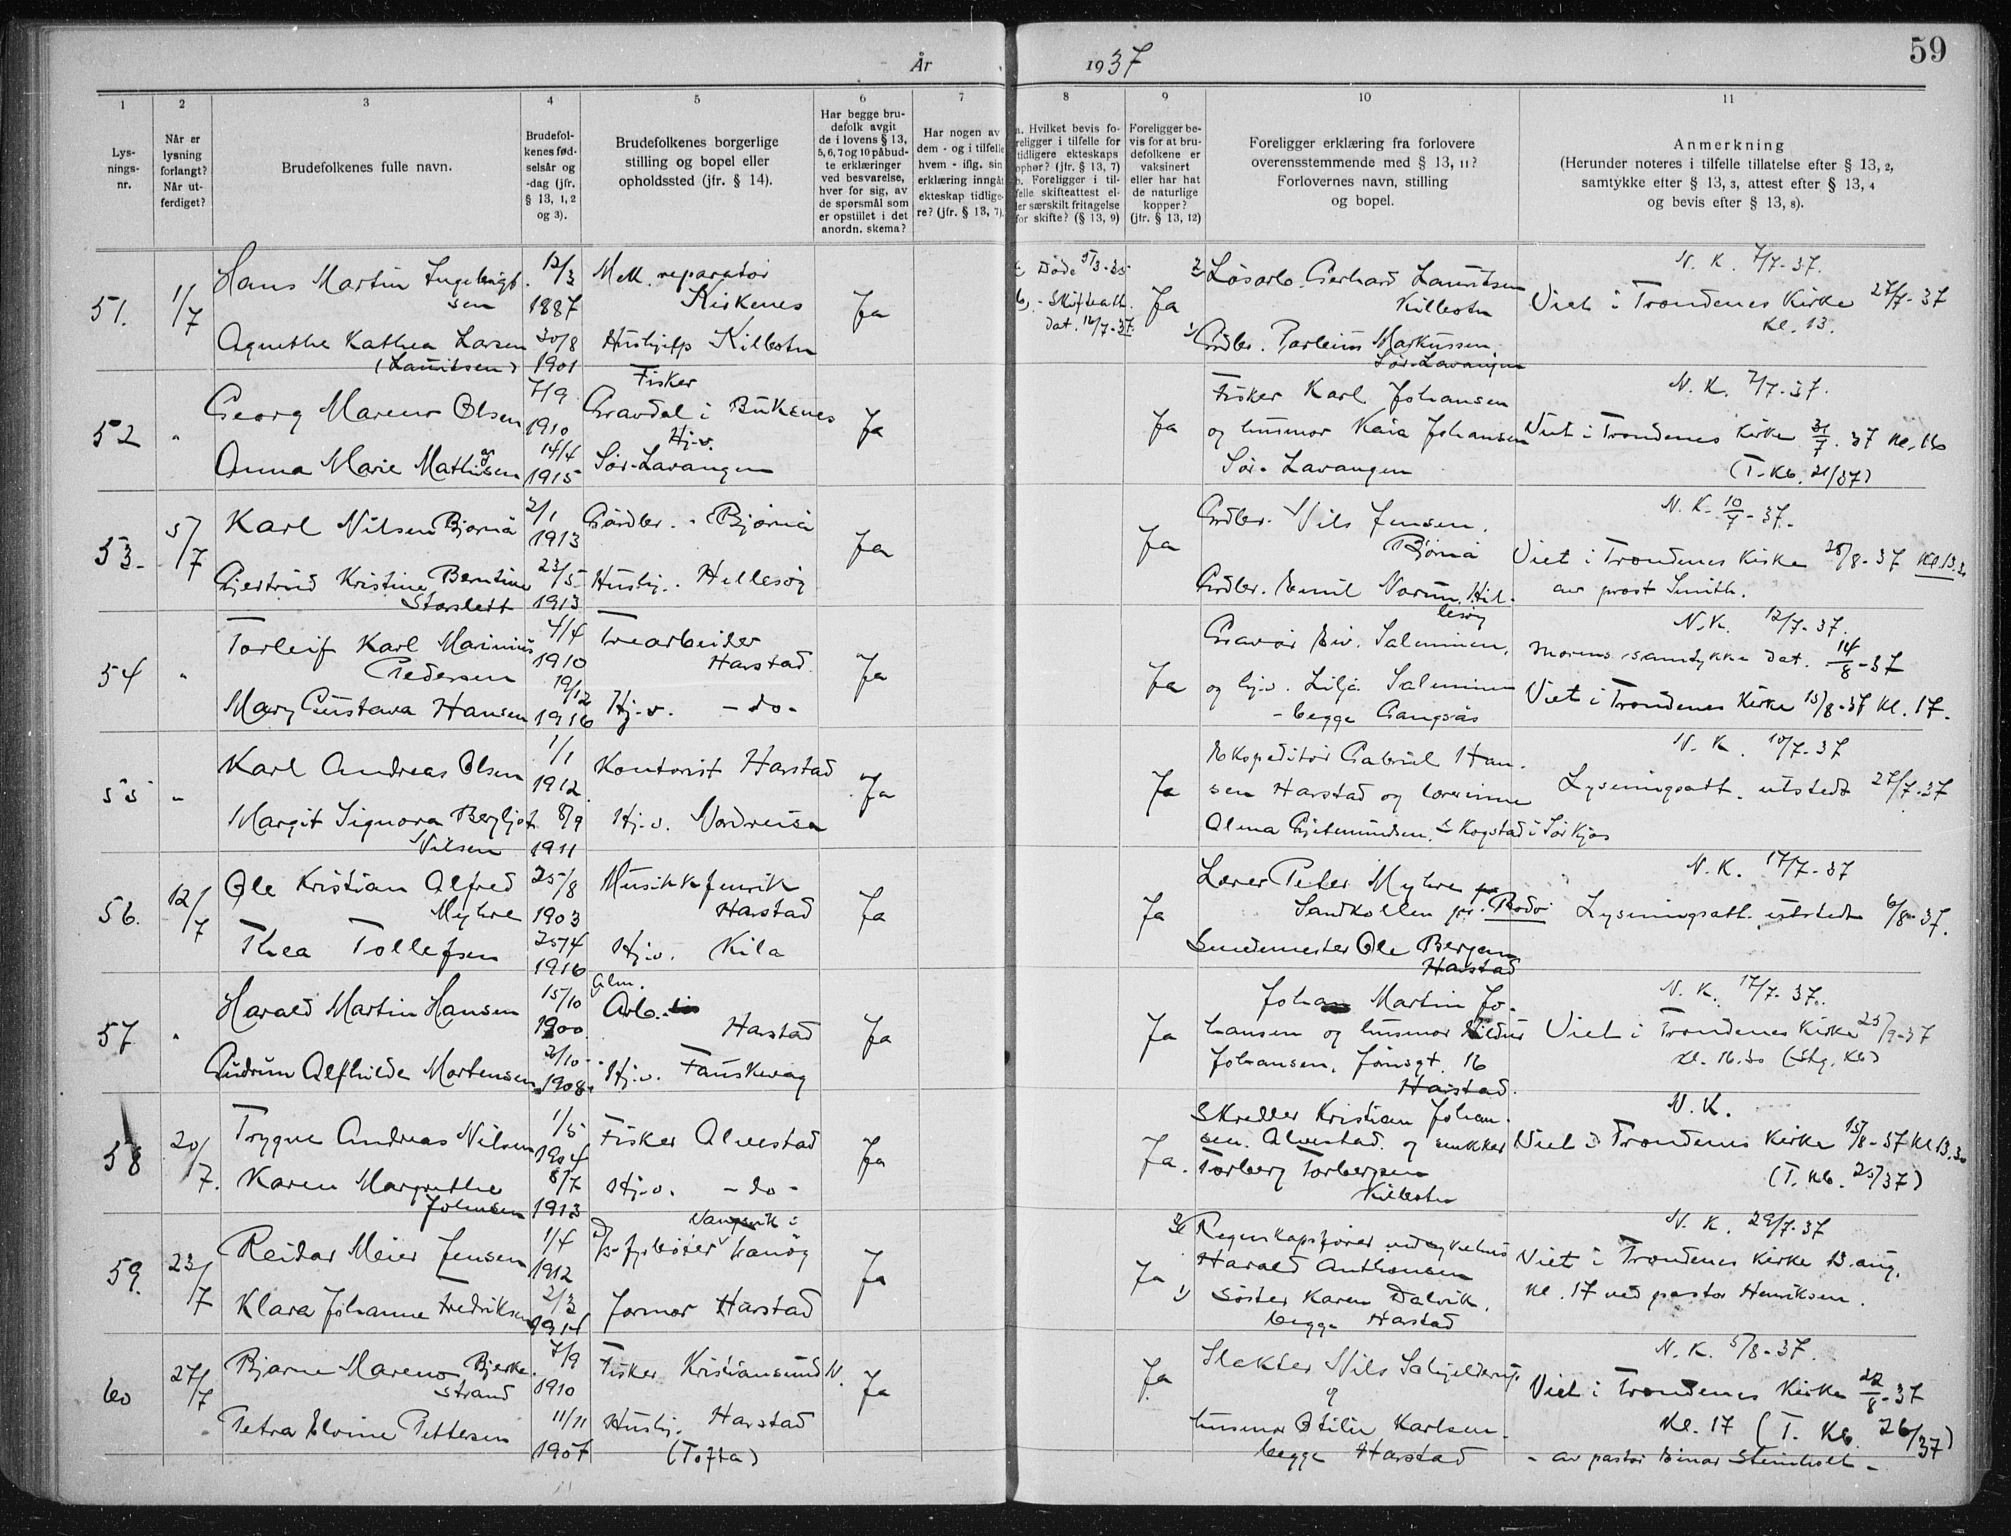 År 1937
59
1
2
3
4
5
6
7
8
9
10
11
Lys-
nings-
nr.
Når er
lysning
forlangt?
Når ut-
ferdiget?
Brudefolkenes fulle navn.
Brudefol-
kenes fød-
selsår og
-dag (jfr.
§ 13, 1, 2
og 3).
Brudefolkenes borgerlige
stilling og bopel eller
opholdssted (jfr. § 14).
Har begge bru-
defolk avgit
de i lovens § 13,
5, 6, 7 og 10 påbud-
te erklæringer
ved besvarelse,
hver for sig, av
de spørsmål som
er opstillet i det
anordn. skema?
Har nogen av
dem - og i tilfelle
hvem - iflg. sin
erklæring inngå
ekteskap tidlige-
re? (jfr. § 13, 7).
a. Hvilket bevis fo-
religger i tilfelle for
tidligere ekteskaps
ophør? (jfr. § 13, 7)
b. Foreligger i til-
felle skifteattest el-
ler særskilt fritagelse
for skifte? (§ 13, 9)
Foreligger be-
vis for at bru-
defolkene er
vaksinert
eller har hat
de naturlige
kopper?
(jfr. § 13, 12)
Foreligger erklæring fra forlovere
overensstemmende med § 13, 11?
Forlovernes navn, stilling
og bopel.
Anmerkning
(Herunder noteres i tilfelle tillatelse efter § 13, 2,
samtykke efter § 13, 3, attest efter § 13, 4
og bevis efter § 13, 8).
51. 1/7
Hans Martin Ingebrigt-
sen
12/3
1887
Mek. reparatør
Kirkenes
Ja
Døde 5/3-35
b, - Skifteatt.
dat. 12/7-37.
Ja
2) Løsarb. Gerhard Lauritsen
Killbotn
N. K. 7/7-37.
Viet i Trondenes Kirke 27/7-37
Kl. 13.
Agnethe Kathea Larsen
(Lauritsen)
30/8
1901
Hushjelp Killbotn
1) Grdbr. Parleius Markussen
Sør-Lavangen
52 "
Georg Mareno Olsen
7/9
1910
Fisker
Gravdal i Buksnes
Ja
Ja
Fisker Karl Johansen
og husmor Kaia Johansen
Sør-Lavangen
N. K. 7/7-37.
Viet i Trondenes Kirke 31/7.37 kl. 16
(T. kb. 21/37)
Anna Marie Mathisen
14/4
1915
Hj.v.
Sør-Lavangen
53- 5/7
Karl Nilsen Bjørnå
2/1
1913
Gårdbr. Bjørnå
Ja
Ja
Grdbr. Nils Jensen.
Bjørnå
N. K. 10/7-37.
Viet i Trondenes Kirke 28/8-37 Kl. 13.30
av prost Smith.
Gjertrud Kristine Berntine
Storslett
23/5
1913
Hushj. Hillesøy
Grdbr. Emil Norum, Hil-
lesøy
54 "
Torleif Karl Marinius
Pedersen
4/4
1910
Trearbeider
Harstad
Ja
Ja
Gravør Eiv. Salominen.
og hj.v. Lilja Salominen
- begge Gangsås
N. K. 12/7-37.
Morens samtykke dat. 14/8-37
Viet i Trondenes Kirke 15/8-37 kl. 17.
Mary Gustava Hansen
19/12
1916
Hj.v. -do-
55 "
Karl Andreas Olsen
1/1
1912.
Kontorist Harstad
Ja
Ja
Ekspeditør Gabriel Han-
sen Harstad og lærerinne
N. K. 10/7-37
Lysningsatt. utstedt 27/7-37
Margit Signora Bergljot
Nilsen
8/9
1911
Hj.v. Nordreisa
Alma Gjetmundsen, Kogstad i Sørkjos
56. 12/7
Ole Kristian Alfred
Myhre
25/8
1903
Musikkfenrik
Harstad
Ja
Ja
Lærer Peter Myhre
Sandkollen pr. Bodø
N. K. 17/7-37
Lysningsatt. utstedt 6/8-37.
Thea Tollefsen
25/4
1916
Hj.v. Kila
Smedmester Ole Bergan
Harstad
57 "
Harald Martin Hansen
15/10
1900
Alm.
Arb.
Harstad
Ja
Ja
Johan Martin Jo-
hansen og husmor Hildur
Johansen, Jørnsgt. 16
Harstad.
N. K. 17/7-37.
Viet i Trondenes Kirke 25/9-37
kl. 16.30 (Stg. Kb)
Gudrun Alfhilde Mortensen
2/10
1908.
Hj.v. Fauskevåg
58 20/7.
Trygve Andreas Nilsen
1/5
1904
Fisker Alvestad
Ja
Ja.
Skredder Kristian Johan-
sen. Alvestad. og snekker
Torberg Torbergsen
Killbotn
N. K.
Viet i Trondenes Kirke 15/8-37 Kl 13.30
(T. Kb. 25/37)
Karen Margrethe
Johnsen
8/7
1913
Hj.v. -do-
59. 23/7
Reidar Meier Jensen
1/4
1912
Vangsvik i
fyrbøter Sanøy
Ja
Ja
2) Regnskapsfører ved sykehus
Harald Anthonsen
1) Søster Karen Dalvik.
begge Harstad
N. K. 29/7-37
Viet i Trondenes Kirke 13. aug.
Kl. 17 ved pastor Henriksen.
Klara Johanne Fredriksen
2/3
1914
Jormor Harstad
60 27/7
Bjarne Mareno Bjerke-
strand
7/9
1910
Fisker Kristiansund N.
Ja
Ja
Slakter Nils Schjelderup
og
husmor Otilie Karlsen.
begge Harstad
N. K. 5/8-37.
Viet i Trondenes Kirke 22/8-37
Kl. 17 (T. Kb. 26/37)
- av pastor Einar Steinholt -
Petra Elvine Pettersen
11/11
1907
Hushj. Harstad
(Tofta)